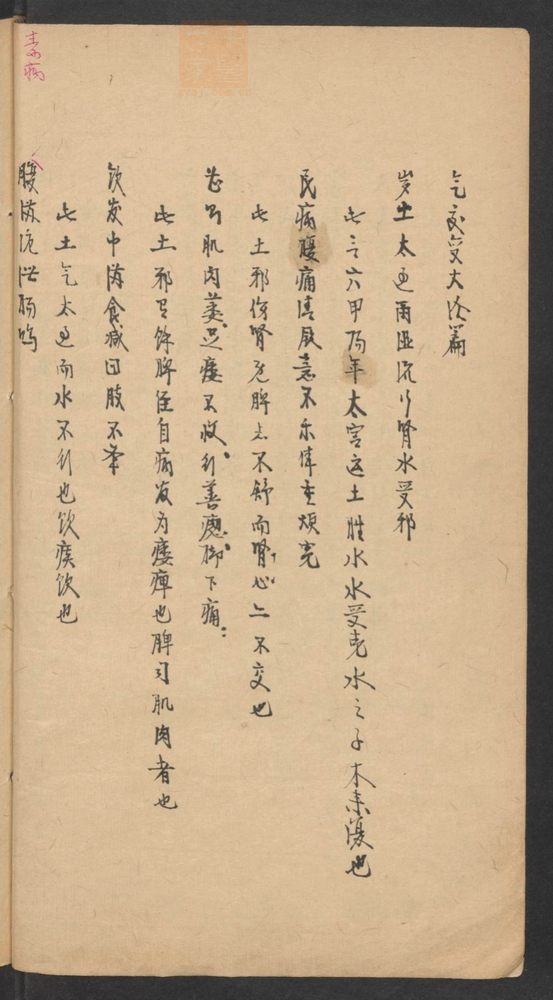 气交变大论篇
岁土太过雨湿流行肾水受邪
此言六甲阳年太宫运土胜水水受克水之子木来复也
民病腹痛清厥意不乐体重烦冤
此土邪伤肾 脾志不舒而肾心二不交也
甚则肌肉萎足痿不收行善瘈脚下痛
此土邪有余脾经自病发为痿痹也脾司肌肉者也
饮发中满食减四肢不举
此土气太过而水不行也饮痰饮也
腹满溏泄肠鸣